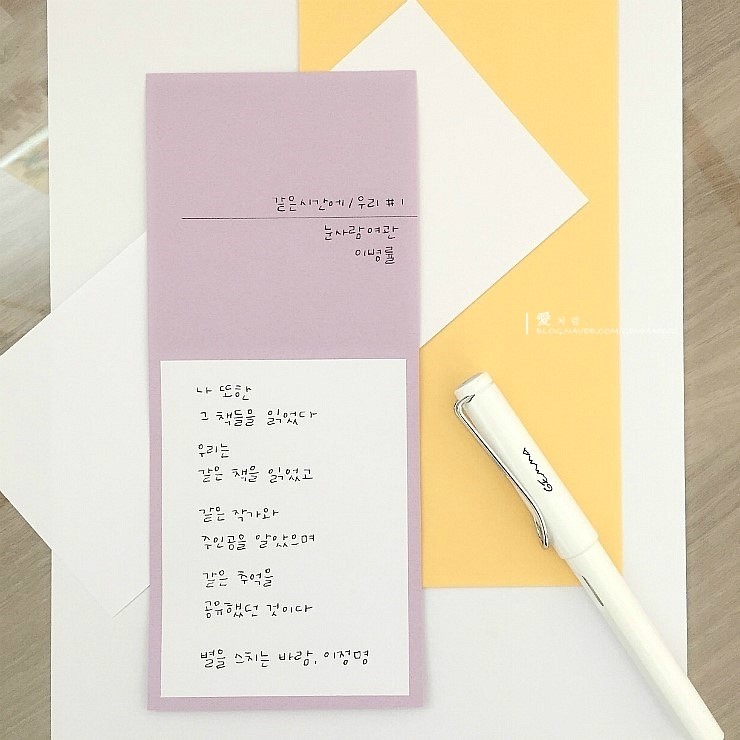 같은시간에/우리 #1
눈사람여관
이병률
나 또한
그 책들을 읽었다
우리는
같은 책을 읽었고
같은 작가와
주인공을 알았으며
같은 추억을
공유했던 것이다
별을 스치는 바람, 이정명
愛